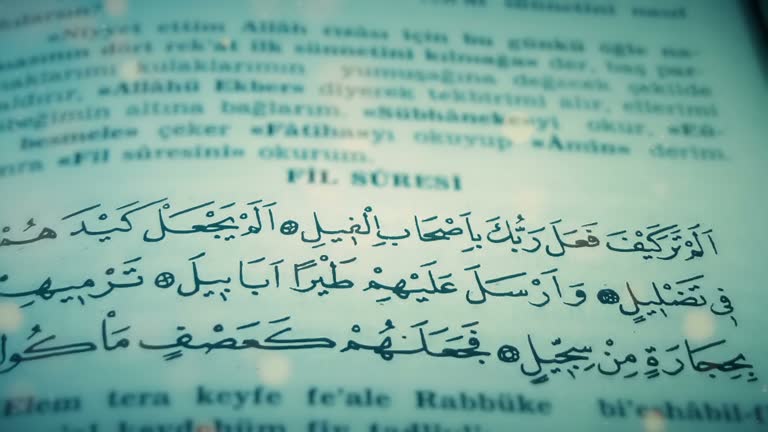 «Niyyet ettim Allâh rızâsı için bu günkü öğle na-
mazının dört rek'at ilk sünnetini kılmağa» der, baş par-
maklarımı kulaklarımın yumuşağına değecek şekilde
kaldırır, «Allâhü Ekber» diyerek tekbîrimi alır, ellerimi
altına bağlarım. «Sübhâneke»yi okur, «Eû-
besmele» çeker «Fâtiha»yı okuyup «Âmîn» derim.
«Fil sûresini» okurum.
FİL SÛRESİ
اَلَمْ تَرَ كَيْفَ فَعَلَ رَبُّكَ بِاَصْحَابِ الْفٖيلِ ۞ اَلَمْ يَجْعَلْ كَيْدَهُمْ
فٖى تَضْلٖيلٍ ۞ وَاَرْسَلَ عَلَيْهِمْ طَيْرًا اَبَابٖيلَ ۞ تَرْمٖيهِمْ
بِحِجَارَةٍ مِنْ سِجّٖيلٍ ۞ فَجَعَلَهُمْ كَعَصْفٍ مَاْكُولٍ
Elem tera keyfe fe'ale Rabbüke bi'eshâbil-f